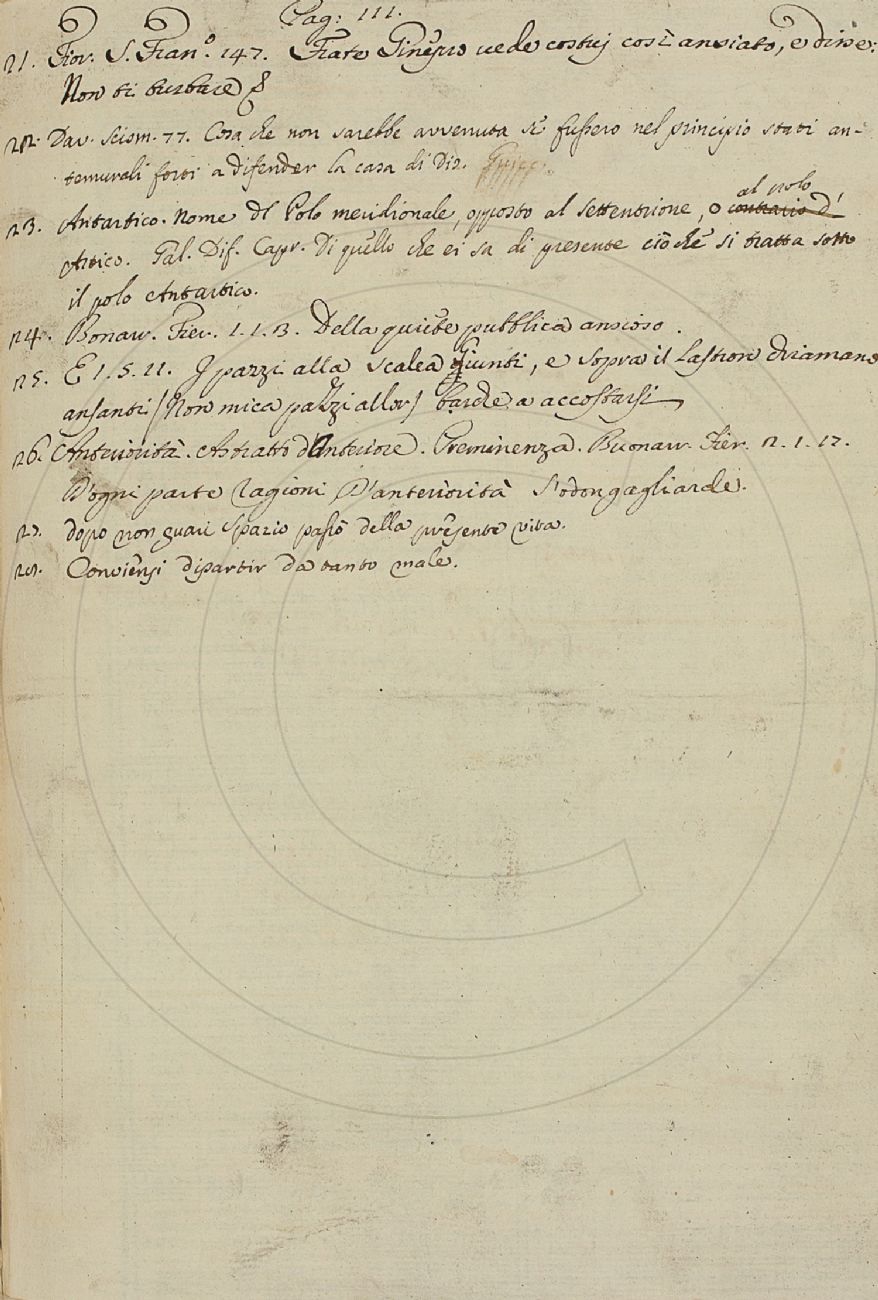 Pag: 111.
21. Fior. S. Fran.º 147. Frate Ginepro vede costuj così ansiato, e disse:
Non ti turbare
22. Dav. Scism. 77. Cosa che non sarebbe avvenuta se fussero nel principio stati an-
temurali forti a difender la casa di Dio.
23. Antartico. Nome dl Polo meridionale, opposto al settentrione, o contrario d' al polo
Artico. Gal. Dif. Capr. Di quello che ei sa di presente ciò che si tratta sotto
il polo Antartico.
24. Bonarr. Fier. 1. 1. 13. Della quiete pubblica ansioso.
25. E 1. 5. 11. I pazzi alla scalea giunti, e sopra il lastron chiamano
ansanti (Non mica pazzi allor) tarde a accostarsi
26. Anteriorità. Astratto d'Anteriore. Preminenza. Buonarr. Fier. 2. 1. 17.
D'ogni parte ragioni D'anteriorità s'odon gagliarde.
27. dopo non guari spazio passò della presente vita.
28. Conviensi dipartir da tanto male.